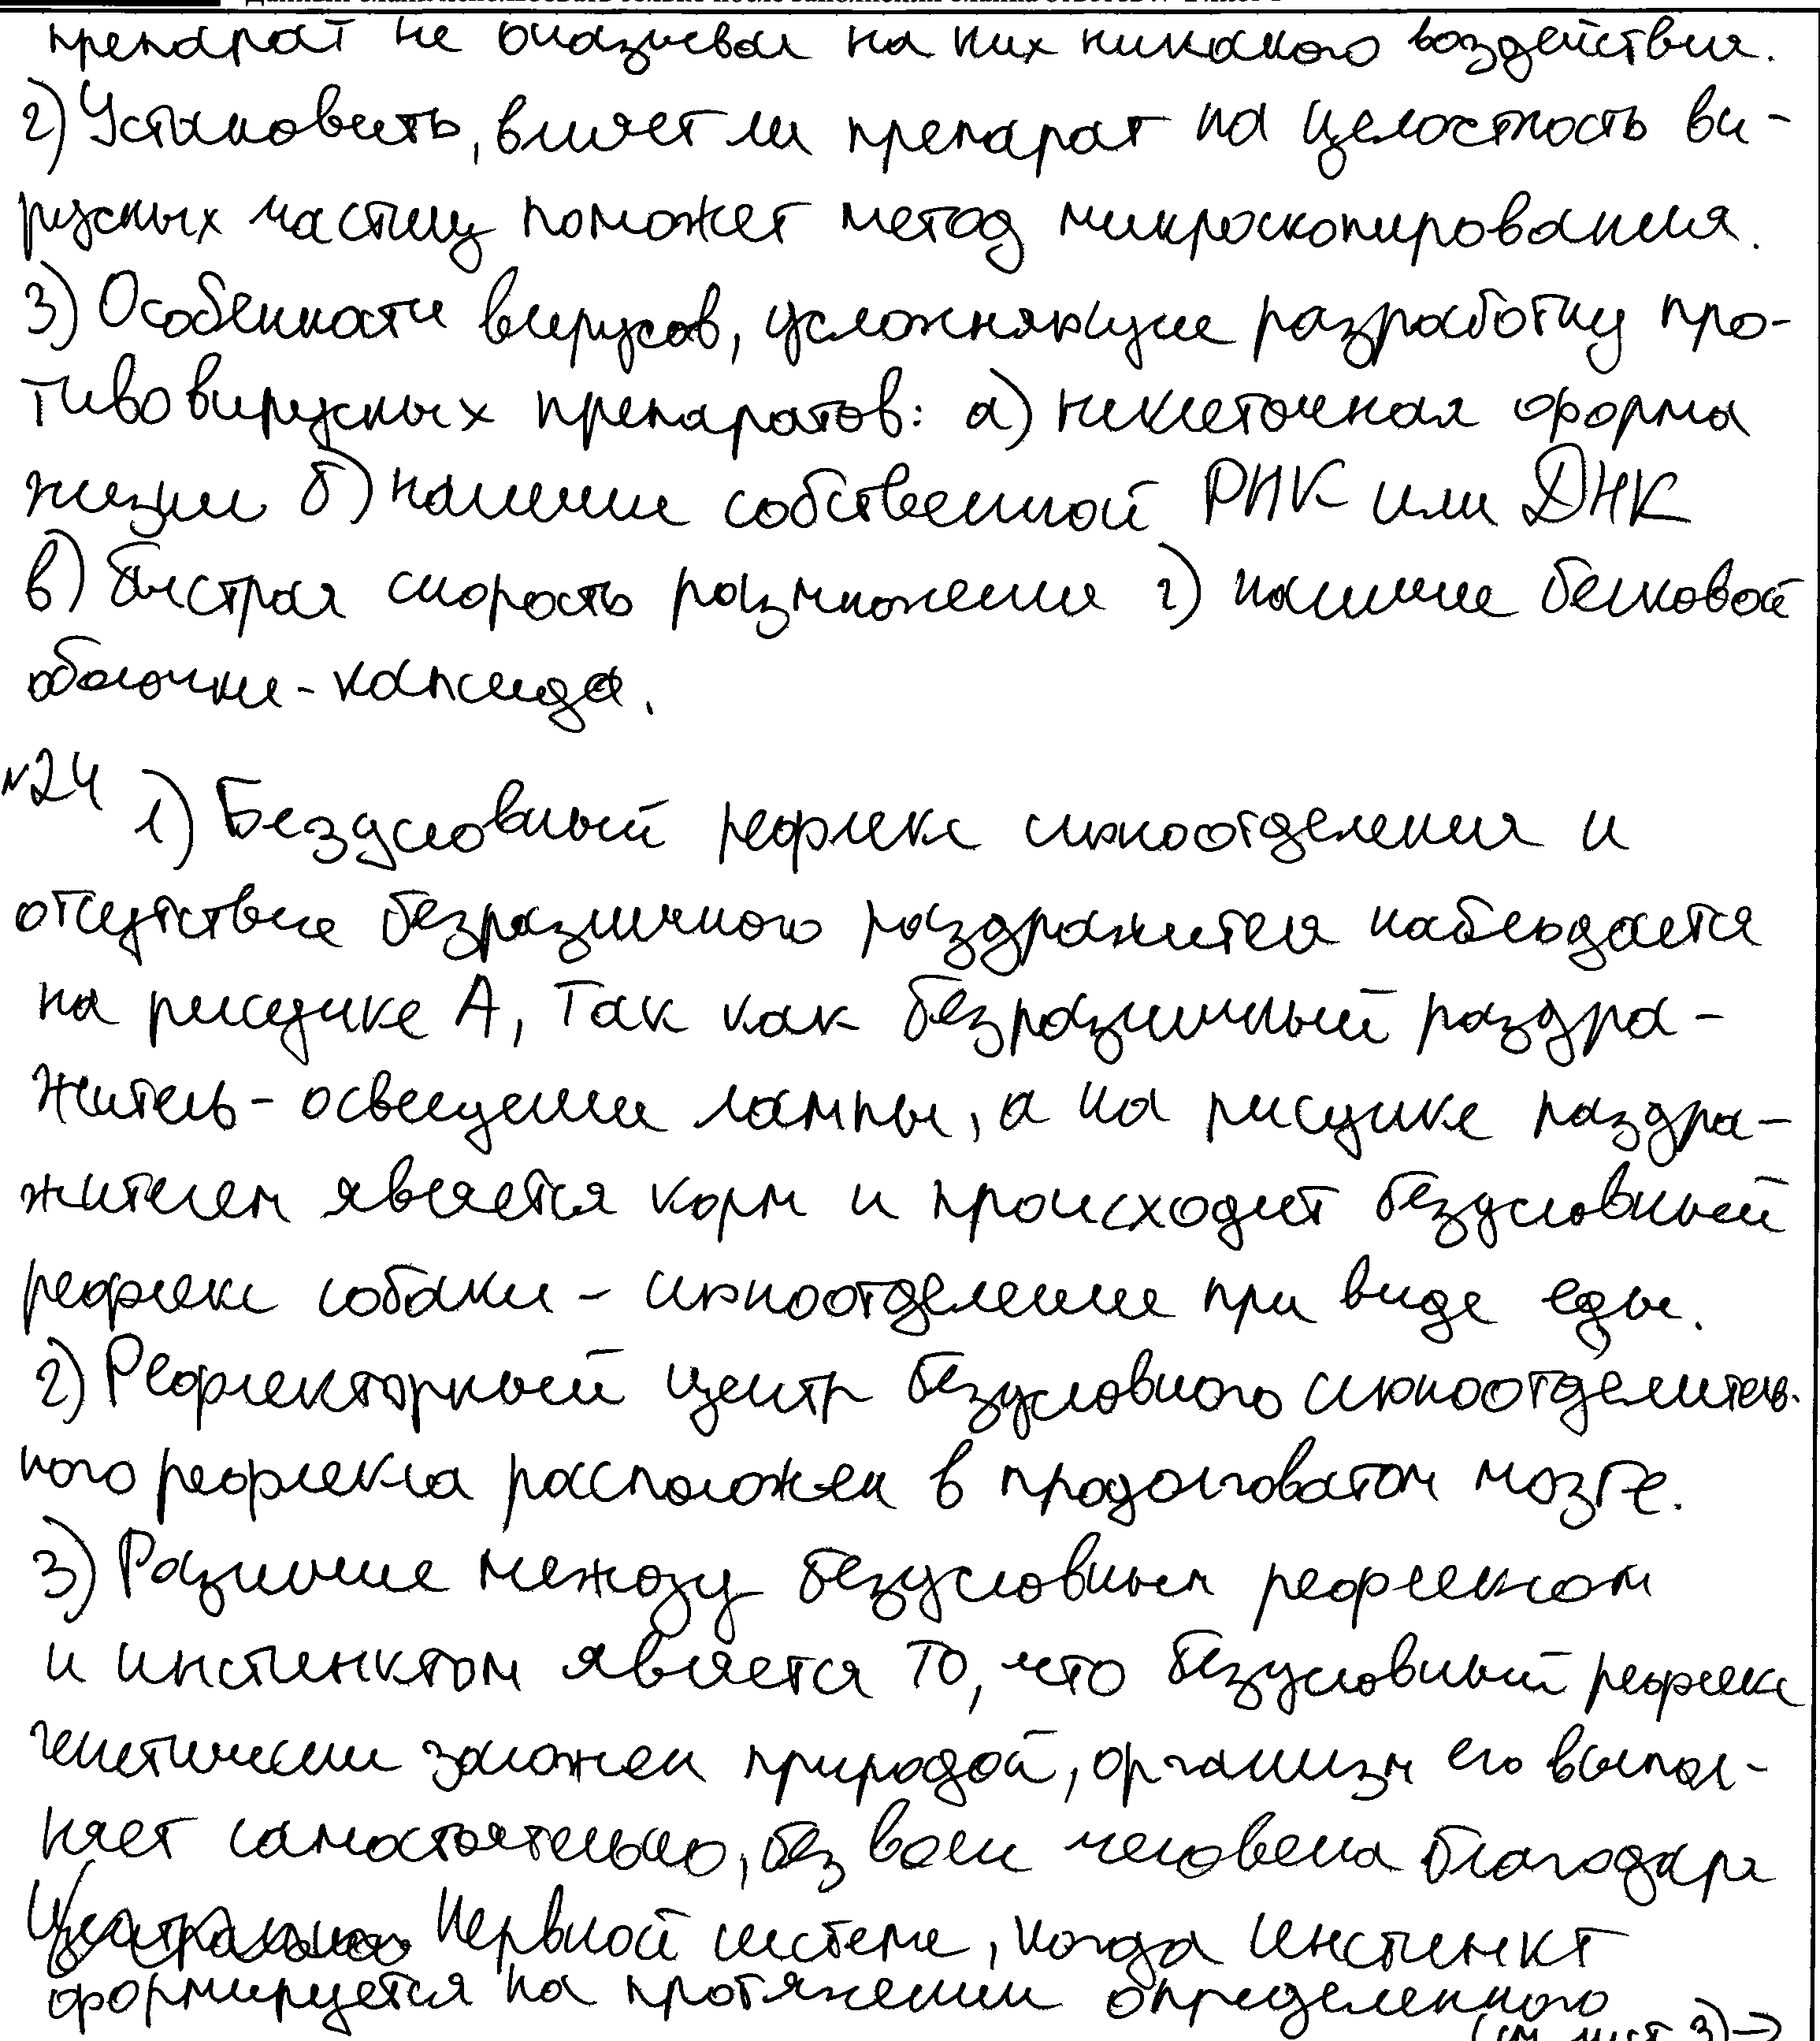 препарат не оказывал на них никакого воздействия.
2) Установить, влияет ли препарат на целостность ви-
русных частиц поможет метод микроскопирования.
3) Особенности вирусов, усложняющие разработку про-
тивовирусных препаратов: а) неклеточная форма
жизни б) наличие собственной РНК или ДНК
в) быстрая скорость размножения г) наличие белковой
оболочки - капсида.
№24 1) Безусловный рефлекс слюноотделения и
отсутствие безразличного раздражителя наблюдается
на рисунке А, так как безразличный раздра-
житель - освещение лампы, а на рисунке раздра-
жителем является корм и происходит безусловный
рефлекс собаки - слюноотделение при виде еды.
2) Рефлекторный центр безусловного слюноотделитель-
ного рефлекса расположен в продолговатом мозге.
3) Различие между безусловным рефлексом
и инстинктом является то, что безусловный рефлекс
генетически заложен природой, организм его выпол-
няет самостоятельно, без воли человека благодаря
нервной системе, когда инстинкт
формируется на протяжении определенного
(см. лист 3) →